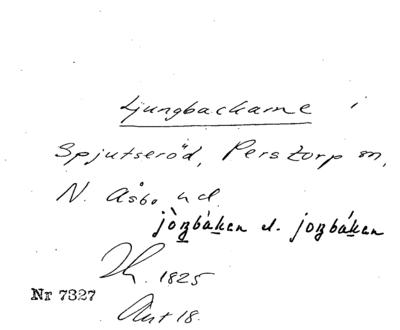 Ljungbackarne i
Spjutseröd, Perstorp sn,
N. Åsbo hd.
jo̊ŋbáken el. joŋbáken
1825
Nr 7327
Ant 18.